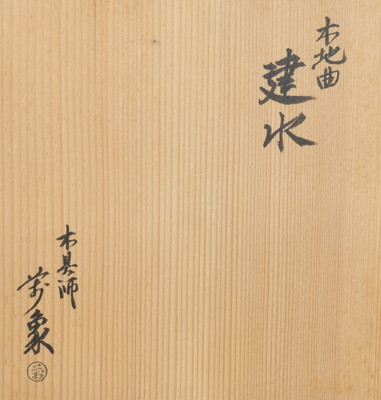 木地曲
建水
木具師
萬象